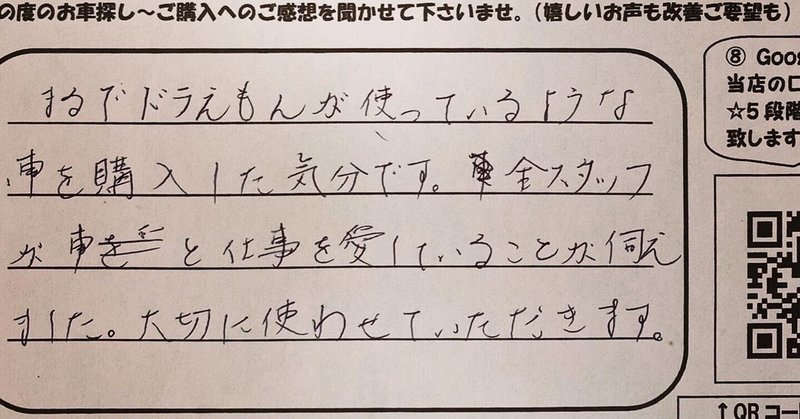 の度のお車探し～ご購入へのご感想を聞かせて下さいませ。（嬉しいお声も改善ご要望も）
まるでドラえもんが使っているような
車を購入した気分です。全スタッフ
が車と仕事を愛していることが伺え
ました。大切に使わせていただきます。
⑧ Goo
当店の口
☆5段階
致します
↑QRコー